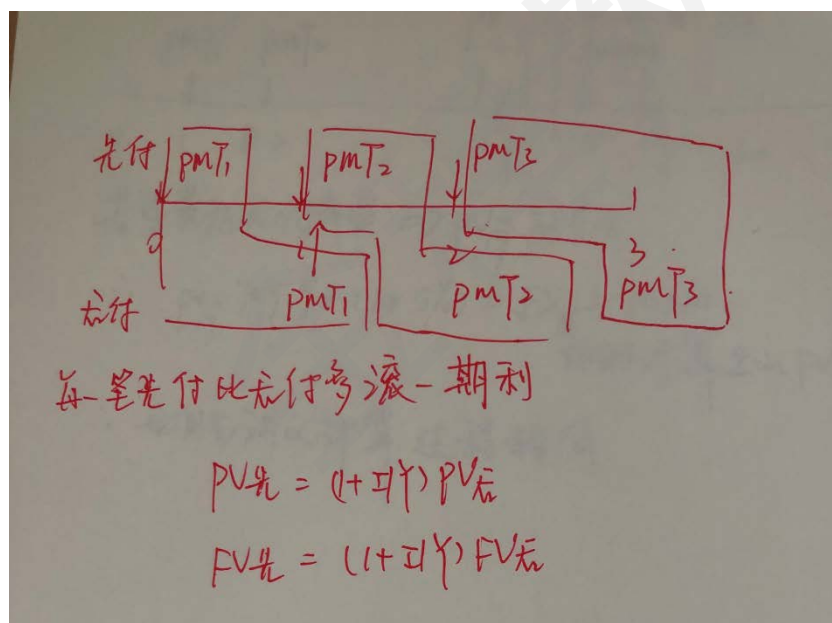 先付 PMT1 PMT2 PMT3
0 1 2 3
后付 PMT1 PMT2 PMT3
每一笔先付比后付多滚一期利
PV先 = (1+I/Y) PV后
FV先 = (1+I/Y) FV后